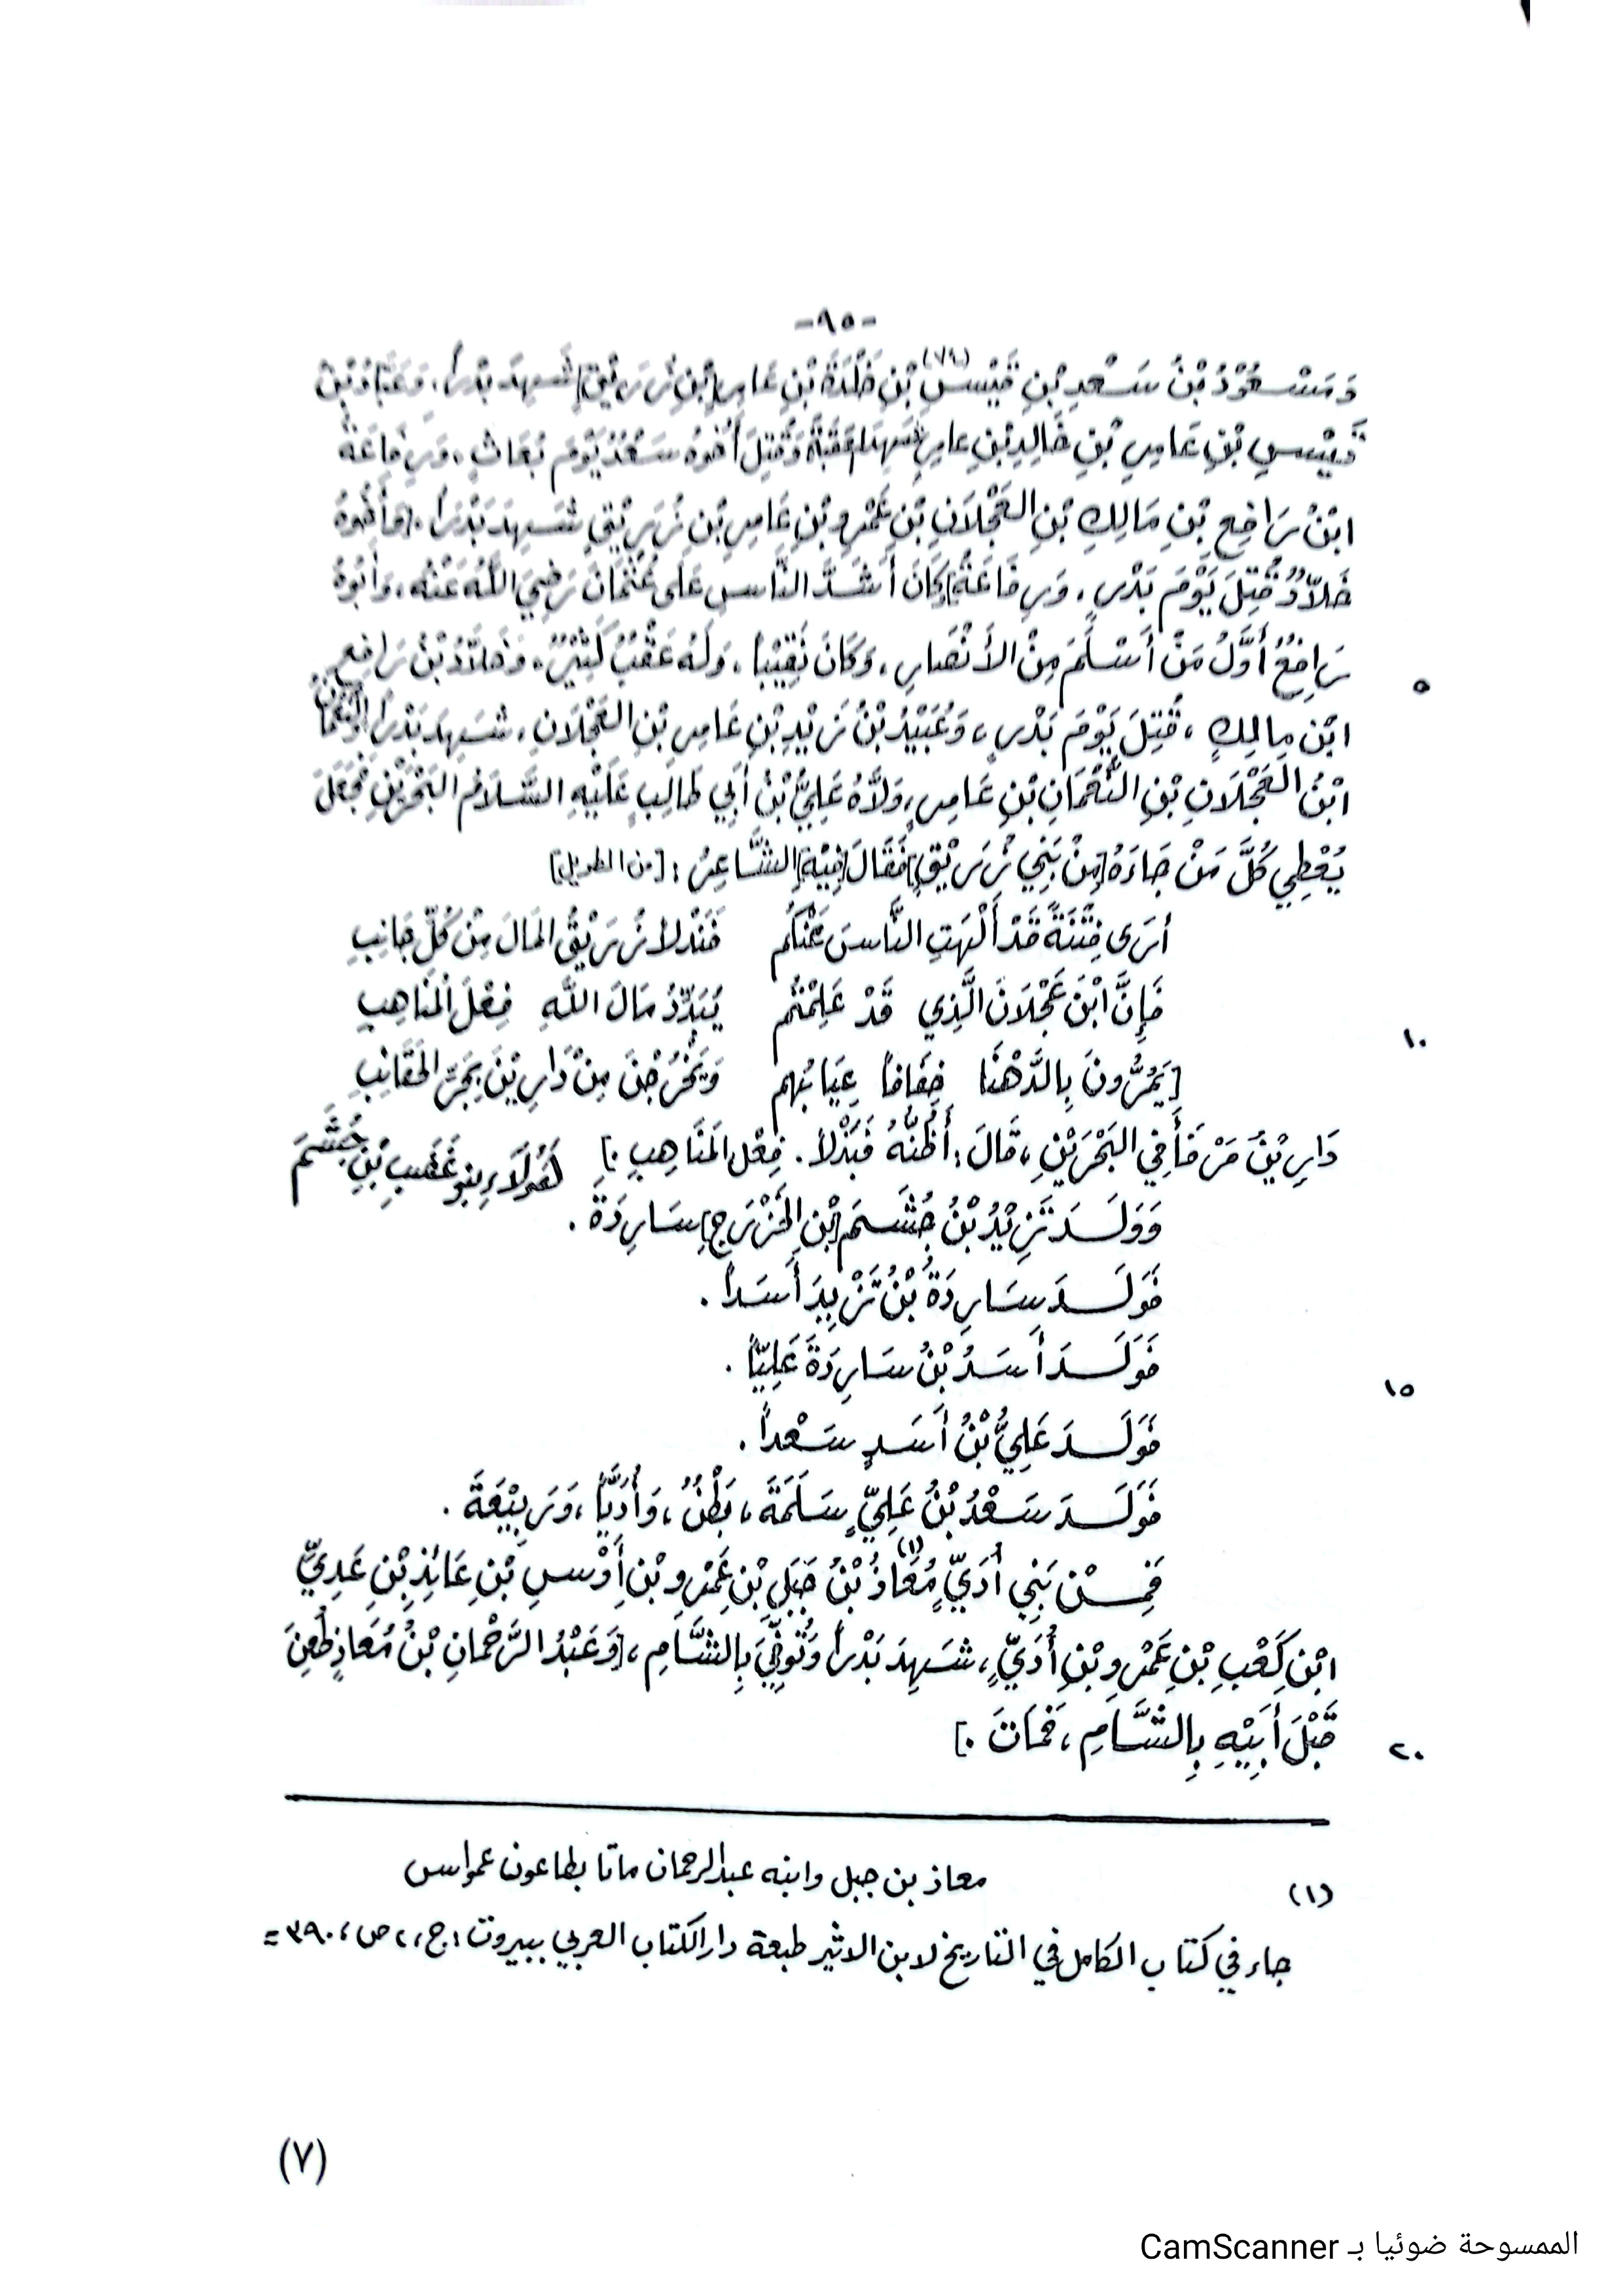 -٩٥-
وَمَسْعُوْدُ بْنُ سَعْدِ بْنِ قَيْسِ (٧٩) بْنِ خَلْدَةَ بْنِ عَامِرِ [بْنِ زُرَيْقٍ] شَهِدَ بَدْراً، وَعَبَّادُ بْنُ
قَيْسِ بْنِ عَامِرِ بْنِ خَالِدِ بْنِ عامِرٍ شَهِدَ العَقَبَةَ وَقُتِلَ أَخُوهُ سَعْدٌ يَوْمَ بُعَاثٍ، وَرِفَاعَةُ
ابْنُ رَافِعِ بْنِ مَالِكِ بْنِ العَجْلَانِ بْنِ عَمْرِو بْنِ عَامِرِ بْنِ زُرَيْقٍ شَهِدَ بَدْرَاً. [وَأَخُوهُ
خَلاَّدٌ قُتِلَ يَوْمَ بَدْرٍ، وَرِفَاعَةُ] كَانَ أَشَدَّ النَّاسِ عَلَى عُثْمَانَ رَضِيَ اللَّهُ عَنْهُ، وَأَبُوهُ
رَافِعٌ أَوَّلُ مَنْ أَسْلَمَ مِنْ الأَنْصَارِ، وَكَانَ نَقِيْباً، وَلَهُ عَقْبٌ كَثِيْرٌ، وَخَلاَّدُ بْنُ رَافِعِ
٥
ابْنِ مالِكٍ، قُتِلَ يَوْمَ بَدْرٍ، وَعُبَيْدُ بْنُ زَيْدِ بْنِ عَامِرِ بْنِ العَجْلَانِ، شَهِدَ بَدْراً، وَالنُّعْمَانُ
ابْنُ العَجْلَانِ بْنِ النُّعْمَانِ بْنِ عَامِرٍ، وَلَّاهُ عَلِيُّ بْنُ أَبِي طَالِبٍ عَلَيْهِ السَّلَامُ البَحْرَيْنِ فَجَعَلَ
يُعْطِي كُلَّ مَنْ جَاءَهُ [مِنْ بَنِي زُرَيْقٍ] فَقَالَ [فِيْهِ] الشَّاعِرُ: [من الطويل]
أَرَى فِتْنَةً قَدْ أَلْهَتِ النَّاسَ عَنْكُمُ فَنَدْلاً زُرَيْقُ المَالَ مِنْ كُلِّ جَانِبِ
فَإِنَّ ابْنَ عَجْلَانَ الَّذِي قَدْ عَلِمْتُمُ يُبَدِّدُ مَالَ اللَّهِ فِعْلَ المَنَاهِبِ
١٠
[يَمُرُّونَ بِالدَّهْنَا خِفَافاً عِيَابُهم وَيَخْرُجْنَ مِنْ دَارِيْنَ بُجْرَ الحَقَائِبِ
دَارِيْنُ مَرْفَأ فِي البَحْرَيْنِ، قَالَ: أَظُنُّهُ فَبَذْلاً. فِعْل المَنَاهِبِ.] هَؤُلَاءِ بنو غَضَبِ بْنِ جُشَمَ
وَوَلَدَ تَزِيْدُ بْنُ جُشَمَ [بْنِ الخَزْرَجِ] سَارِدَةَ.
فَوَلَدَ سَارِدَةُ بْنُ تَزْيِدَ أَسَداً.
فَوَلَدَ أَسَدُ بْنُ سَارِدَةَ عَلِيّاً.
١٥
فَوَلَدَ عَلِيُّ بْنُ أَسَدٍ سَعْداً.
فَوَلَدَ سَعْدُ بْنُ عَلِيٍّ سَلَمَةَ، بَطْنٌ، وَأُدَيّاً، وَرَبِيْعَةَ.
فَمِنْ بَنِي أُدَيٍّ مُعَاذُ (١) بْنُ جَبَلِ بْنِ عَمْرِو بْنِ أَوْسِ بْنِ عَائِذِ بْنِ عَدِيِّ
ابْنِ كَعْبِ بْنِ عَمْرِو بْنِ أُدَيٍّ، شَهِدَ بَدْراً وَتُوفِّيَ بِالشَّامِ، [وَعَبْدُ الرَّحْمَانِ بْنُ مُعَاذٍ طُعِنَ
قَبْلَ أَبِيْهِ بِالشَّامِ، فَمَاتَ.]
٢٠
(١) معاذ بن جبل وابنه عبدالرحمان ماتا بطاعون عمواس
جاء في كتاب الكامل في التاريخ لابن الاثير طبعة دار الكتاب العربي ببيروت: ج، ٢ ص، ٣٩٠ =
(٧)
الممسوحة ضوئيا بـ CamScanner